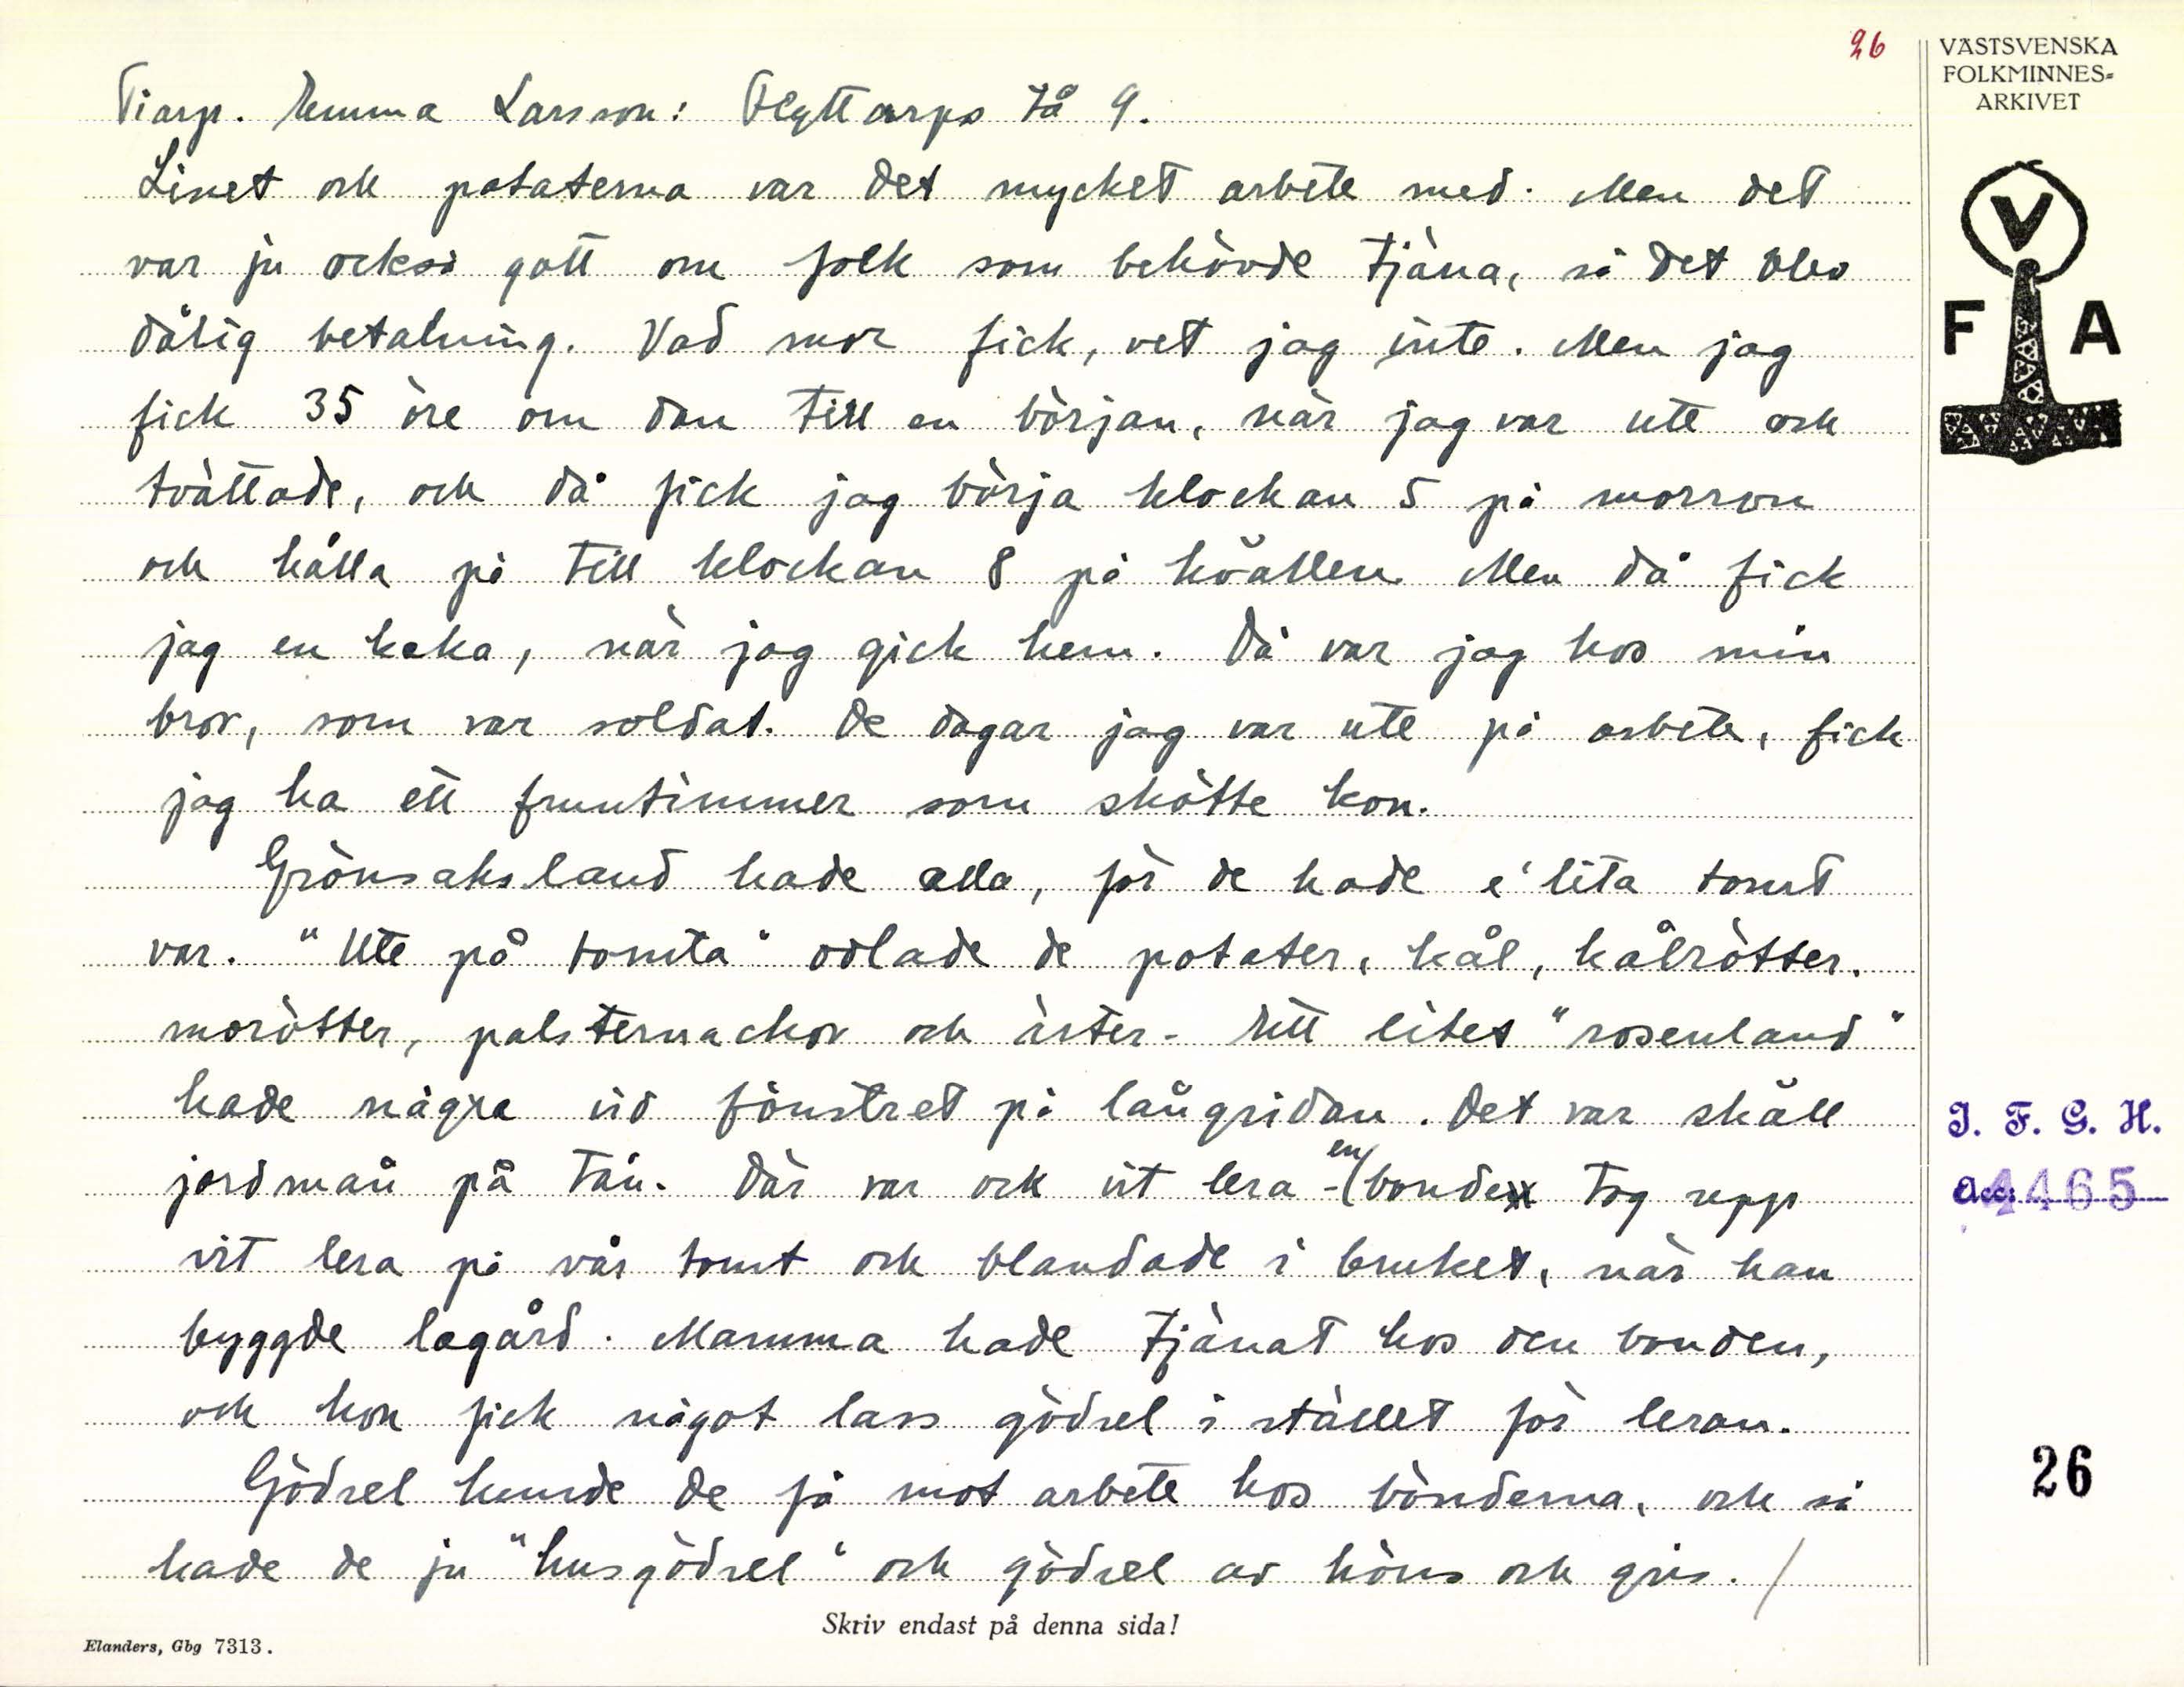 26
VÄSTSVENSKA
FOLKMINNES=
ARKIVET
Tiarp. Emma Larsson: Flyttarps tå 9.
Linet och potaterna var det mycket arbete med. Men det
var ju också gott om folk som behövde tjäna, så det blev
dålig betalning. Vad mor fick, vet jag inte. Men jag
fick 35 öre om dan till en början, när jag var ute och
tvättade, och då fick jag börja klockan 5 på morron
och hålla på till klockan 8 på kvällen. Men då fick
jag en kaka, när jag gick hem. Då var jag hos min
bror, som var soldat. De dagar jag var ute på arbete, fick
jag ha ett fruntimmer som skötte kon.
Grönsaksland hade alla, för de hade e' lita tomt
var. "Ute på tomta" odlade de potater, kål, kålrötter,
morötter, palsternackor och ärter. Ett litet "rosenland"
hade några vid fönstret på långsidan. Det var skäll
jordmån på tån. Där var ock vit lera - en bonde tog upp
vit lera på vår tomt och blandade i bruket, när han
byggde lagård. Mamma hade tjänat hos den bonden,
och hon fick något lass gödsel i stället för leran.
Gödsel kunde de få mot arbete hos bönderna, och så
hade de ju "husgödsel" och gödsel av höns och gris. /
V
F A
I. F. G. H.
Acc. 4465
26
Skriv endast på denna sida!
Elanders, Gbg 7313.